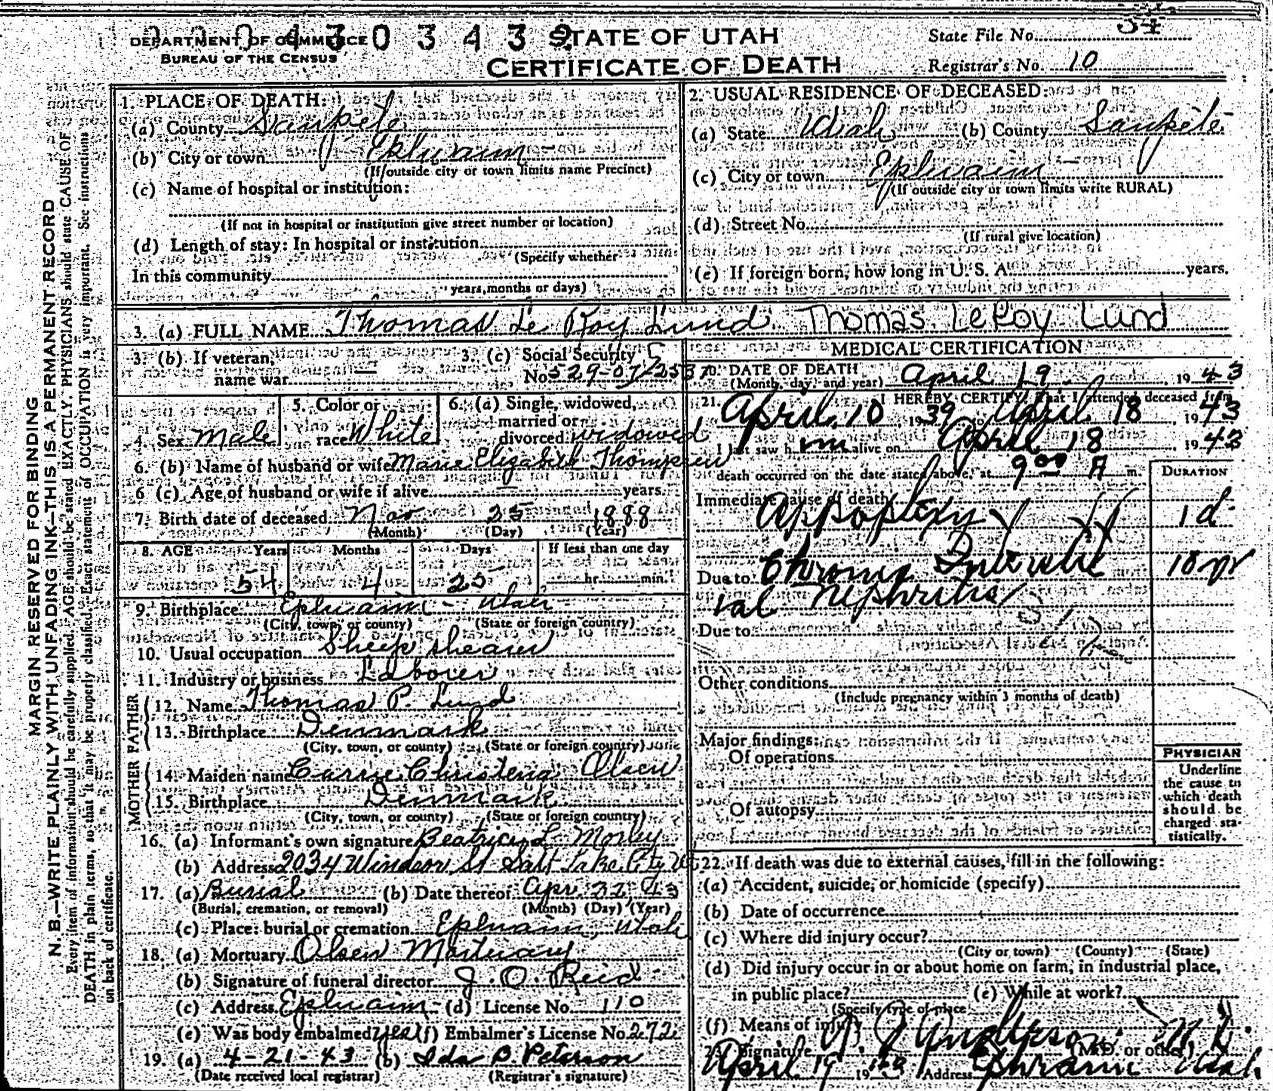 DEPARTMENT OF COMMERCE
BUREAU OF THE CENSUS
STATE OF UTAH
CERTIFICATE OF DEATH
State File No. 54
Registrar's No. 10
MARGIN RESERVED FOR BINDING
N. B.—WRITE PLAINLY WITH UNFADING INK—THIS IS A PERMANENT RECORD
Every item of information should be carefully supplied. AGE should be stated EXACTLY. PHYSICIANS should state CAUSE OF
DEATH in plain terms, so that it may be properly classified. Exact statement of OCCUPATION is very important. See instructions
on back of certificate.
1. PLACE OF DEATH:
(a) County Sanpete
(b) City or town Ephraim
(If outside city or town limits name Precinct)
(c) Name of hospital or institution:
(If not in hospital or institution give street number or location)
(d) Length of stay: In hospital or institution
(Specify whether
In this community
years, months or days)
2. USUAL RESIDENCE OF DECEASED:
(a) State Utah (b) County Sanpete
(c) City or town Ephraim
(If outside city or town limits write RURAL)
(d) Street No.
(If rural give location)
(e) If foreign born, how long in U. S. A. years.
3. (a) FULL NAME Thomas Le Roy Lund Thomas LeRoy Lund
3. (b) If veteran, name war —
3. (c) Social Security No. 529-07-
4. Sex Male
5. Color or race White
6. (a) Single, widowed, married or divorced widowed
6. (b) Name of husband or wife Marie Elizabeth Thompson
6 (c) Age of husband or wife if alive — years.
7. Birth date of deceased Nov 25 1888
(Month) (Day) (Year)
8. AGE Years Months Days If less than one day
54 4 25 hr. min.
9. Birthplace Ephraim - Utah
(City, town, or county) (State or foreign country)
10. Usual occupation Sheep shearer
11. Industry or business Laborer
FATHER
12. Name Thomas P. Lund
13. Birthplace Denmark
(City, town, or county) (State or foreign country)
MOTHER
14. Maiden name Carrie Christena Olsen
15. Birthplace Denmark
(City, town, or county) (State or foreign country)
16. (a) Informant's own signature Beatrice L. Morley
(b) Address 2034 Windsor St Salt Lake City U
17. (a) Burial (b) Date thereof Apr. 22, 43
(Burial, cremation, or removal) (Month) (Day) (Year)
(c) Place: burial or cremation Ephraim, Utah
18. (a) Mortuary Olsen Mortuary
(b) Signature of funeral director J. O. Reid
(c) Address Ephraim (d) License No. 110
(e) Was body embalmed? yes (f) Embalmer's License No. 272
19. (a) 4-21-43 (b) Ida P. Peterson
(Date received local registrar) (Registrar's signature)
MEDICAL CERTIFICATION
20. DATE OF DEATH
(Month, day, and year) April 19 19 43
21. I HEREBY CERTIFY, that I attended deceased from
April 10 1939 April 18 1943
I last saw him alive on April 18 1943
death occurred on the date stated above, at 9 00 A m.
DURATION
Immediate cause of death
Appoplexy 1 d
Due to Chronic Interstit 10 yr
ial Nephritis
Due to
Other conditions
(Include pregnancy within 3 months of death)
Major findings:
Of operations
Of autopsy
PHYSICIAN
Underline the cause to which death should be charged statistically.
22. If death was due to external causes, fill in the following:
(a) Accident, suicide, or homicide (specify)
(b) Date of occurrence
(c) Where did injury occur?
(City or town) (County) (State)
(d) Did injury occur in or about home on farm, in industrial place,
in public place? (e) While at work?
(Specify type of place
(f) Means of injury
23. Signature Anderson M. D.
(M.D. or other)
April 19 19 Address Ephraim Utah